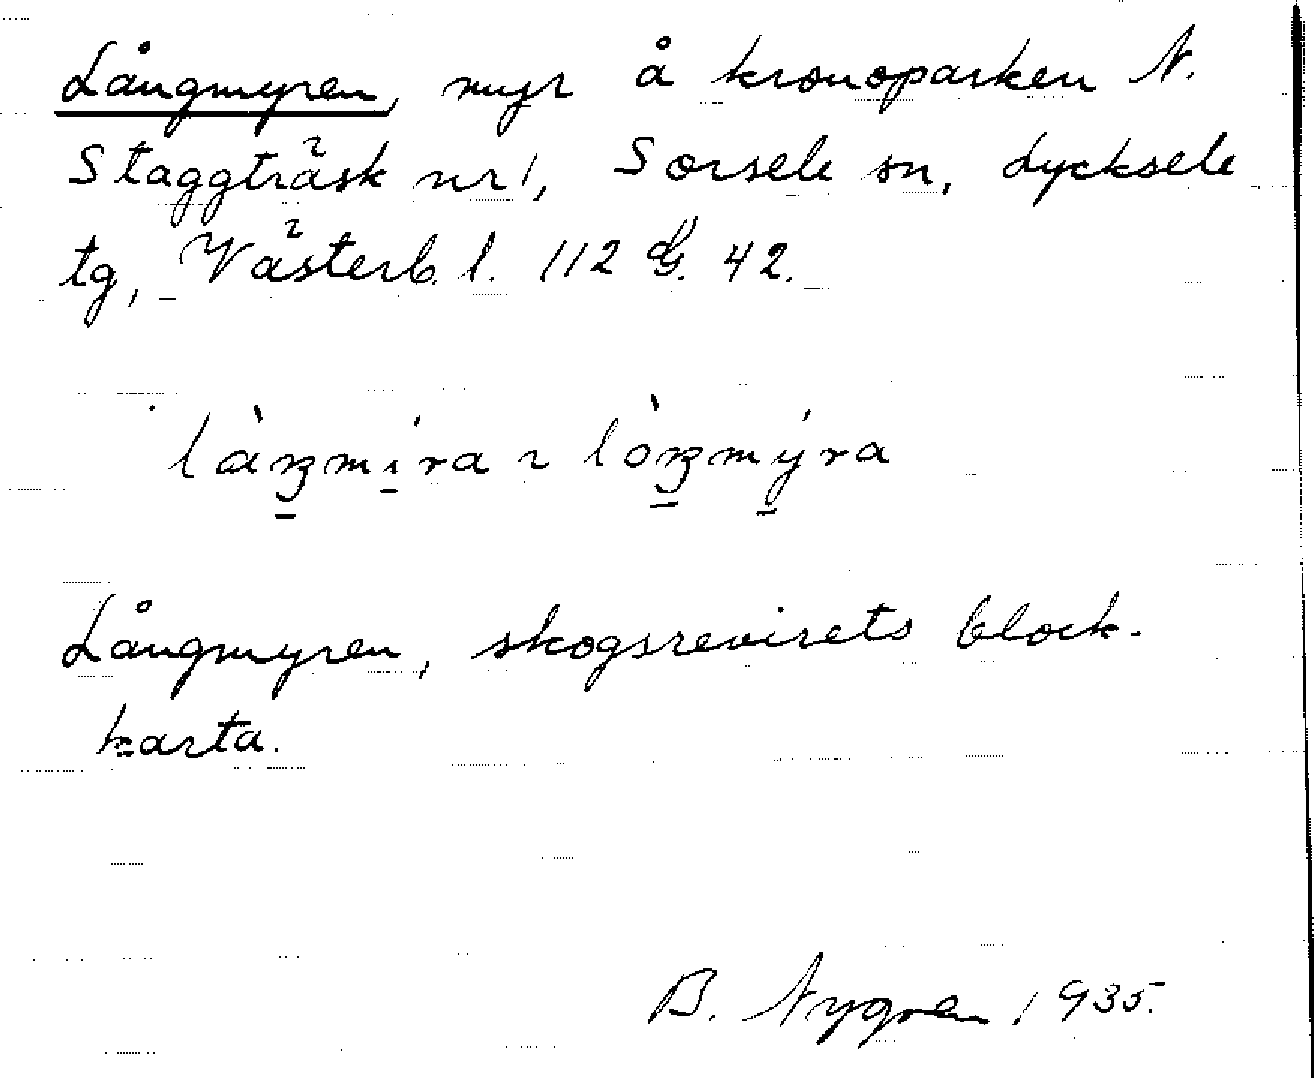 Långmyren, myr å kronoparken N.
Staggträsk nr 1, Sorsele sn, Lycksele
tg, Västerb. l. 112 G. 42.
làŋmíra ~ lòŋmýra
Långmyren, skogsrevirets block-
karta.
B. Nygren 1935.